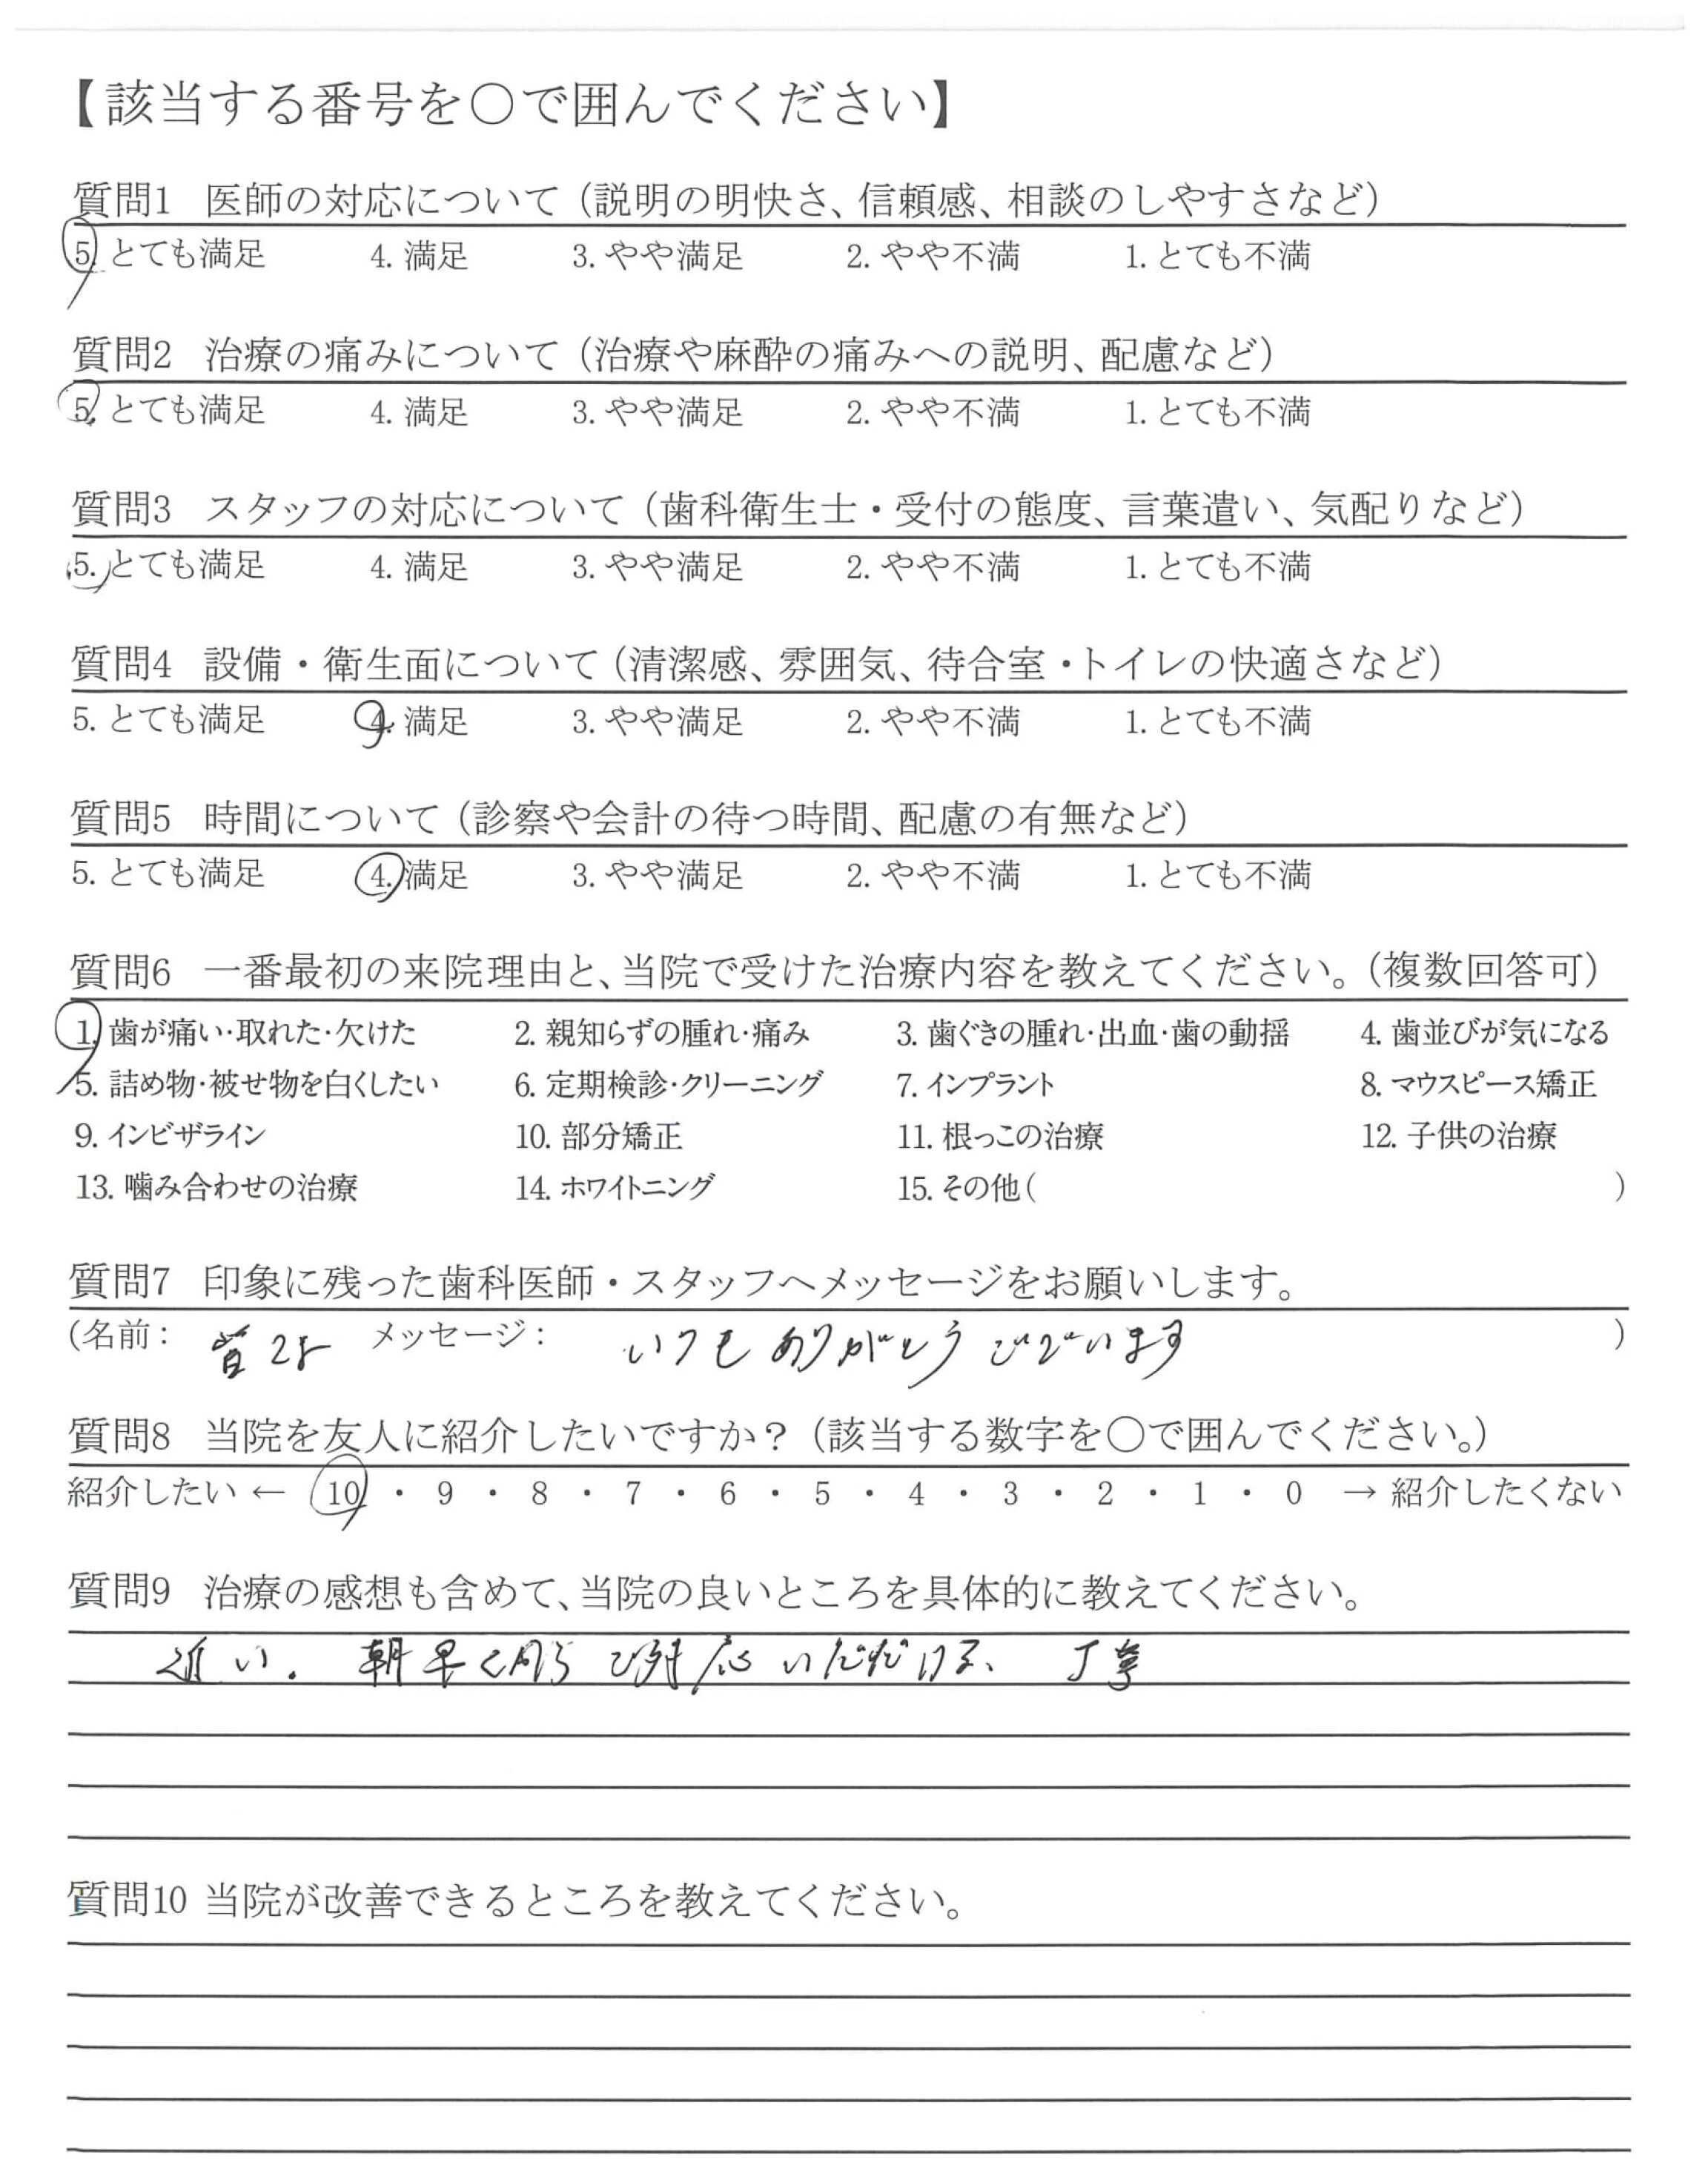 【該当する番号を〇で囲んでください】
質問1 医師の対応について（説明の明快さ、信頼感、相談のしやすさなど）
5. とても満足 4. 満足 3. やや満足 2. やや不満 1. とても不満
質問2 治療の痛みについて（治療や麻酔の痛みへの説明、配慮など）
5. とても満足 4. 満足 3. やや満足 2. やや不満 1. とても不満
質問3 スタッフの対応について（歯科衛生士・受付の態度、言葉遣い、気配りなど）
5. とても満足 4. 満足 3. やや満足 2. やや不満 1. とても不満
質問4 設備・衛生面について（清潔感、雰囲気、待合室・トイレの快適さなど）
5. とても満足 4. 満足 3. やや満足 2. やや不満 1. とても不満
質問5 時間について（診察や会計の待つ時間、配慮の有無など）
5. とても満足 4. 満足 3. やや満足 2. やや不満 1. とても不満
質問6 一番最初の来院理由と、当院で受けた治療内容を教えてください。（複数回答可）
1. 歯が痛い・取れた・欠けた 2. 親知らずの腫れ・痛み 3. 歯ぐきの腫れ・出血・歯の動揺 4. 歯並びが気になる
5. 詰め物・被せ物を白くしたい 6. 定期検診・クリーニング 7. インプラント 8. マウスピース矯正
9. インビザライン 10. 部分矯正 11. 根っこの治療 12. 子供の治療
13. 噛み合わせの治療 14. ホワイトニング 15. その他（ ）
質問7 印象に残った歯科医師・スタッフへメッセージをお願いします。
（名前： 皆さま メッセージ： いつもありがとうございます ）
質問8 当院を友人に紹介したいですか？（該当する数字を〇で囲んでください。）
紹介したい ← 10 ・ 9 ・ 8 ・ 7 ・ 6 ・ 5 ・ 4 ・ 3 ・ 2 ・ 1 ・ 0 → 紹介したくない
質問9 治療の感想も含めて、当院の良いところを具体的に教えてください。
近い. 朝早くから ご対応いただける、 丁寧
質問10 当院が改善できるところを教えてください。